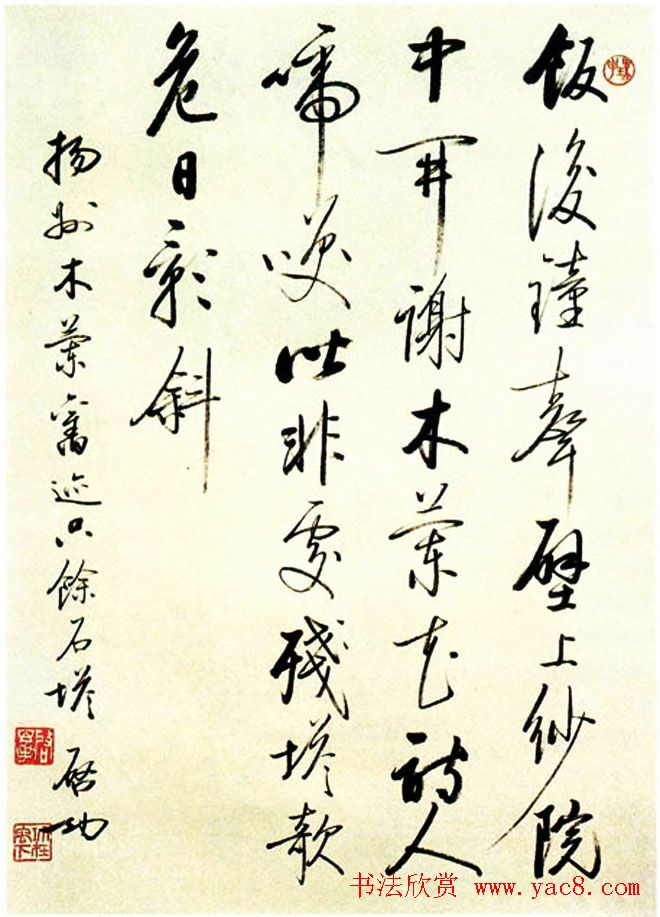 飯後鐘聲壁上紗院
中開謝木蘭花詩人
啼咲皆非處殘塔欹
危日影斜
揚州木蘭舊迹只餘石塔 啟功
书法欣赏 www.yac8.com